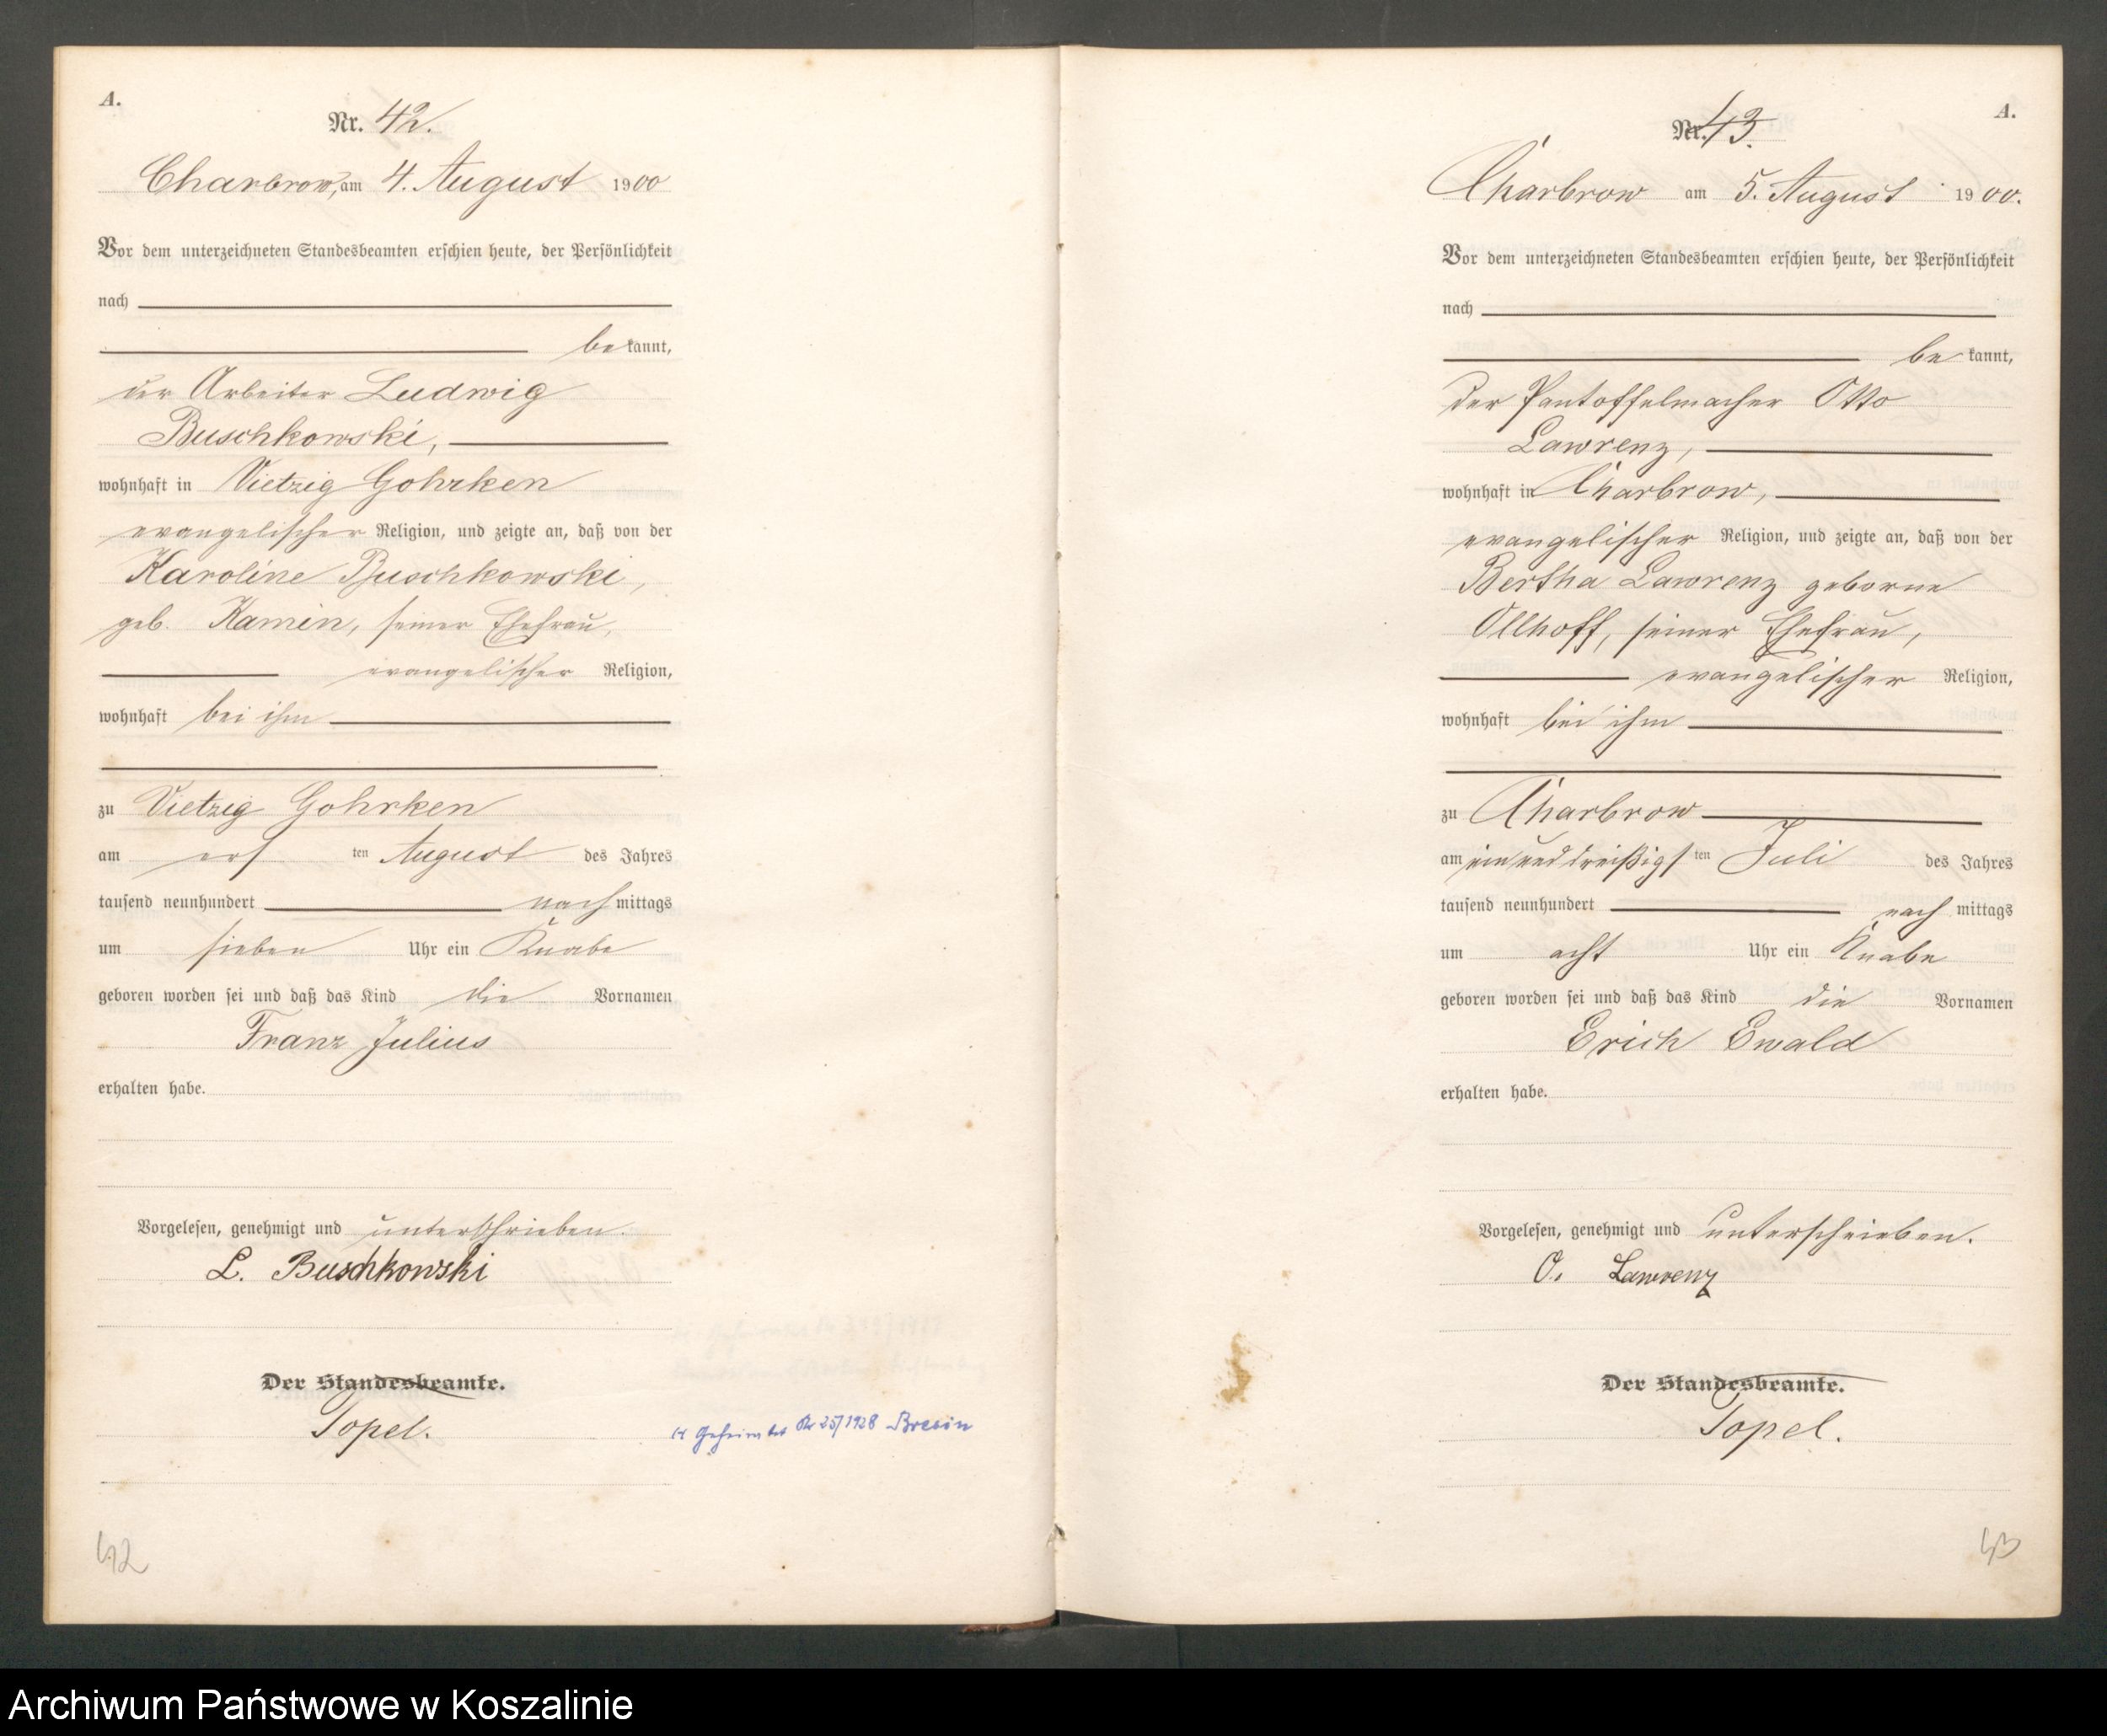 A.
Nr. 42.
Charbrow, am 4. August 1900
Vor dem unterzeichneten Standesbeamten erschien heute, der Persönlichkeit
nach
be kannt,
der Arbeiter Ludwig
Buschkowski,
wohnhaft in Vietzig Gohrken
evangelischer Religion, und zeigte an, daß von der
Karoline Buschkowski,
geb. Kamin, seiner Ehefrau,
evangelischer Religion,
wohnhaft bei ihm
zu Vietzig Gohrken
am ers ten August des Jahres
tausend neunhundert nach mittags
um sieben Uhr ein Knabe
geboren worden sei und daß das Kind die Vornamen
Franz Julius
erhalten habe.
Vorgelesen, genehmigt und unterschrieben.
L. Buschkowski
Der Standesbeamte.
Topel.
Geheiratet Nr 25/1928
42
A.
Nr. 43.
Charbrow am 5. August 1900.
Vor dem unterzeichneten Standesbeamten erschien heute, der Persönlichkeit
nach
be kannt,
der Pantoffelmacher Otto
Lawrenz,
wohnhaft in Charbrow,
evangelischer Religion, und zeigte an, daß von der
Bertha Lawrenz geborne
Ollhoff, seiner Ehefrau,
evangelischer Religion,
wohnhaft bei ihm
zu Charbrow
am ein und dreißigs ten Juli des Jahres
tausend neunhundert nach mittags
um acht Uhr ein Knabe
geboren worden sei und daß das Kind die Vornamen
Erich Ewald
erhalten habe.
Vorgelesen, genehmigt und unterschrieben.
O. Lawrenz
Der Standesbeamte.
Topel.
43
Archiwum Państwowe w Koszalinie